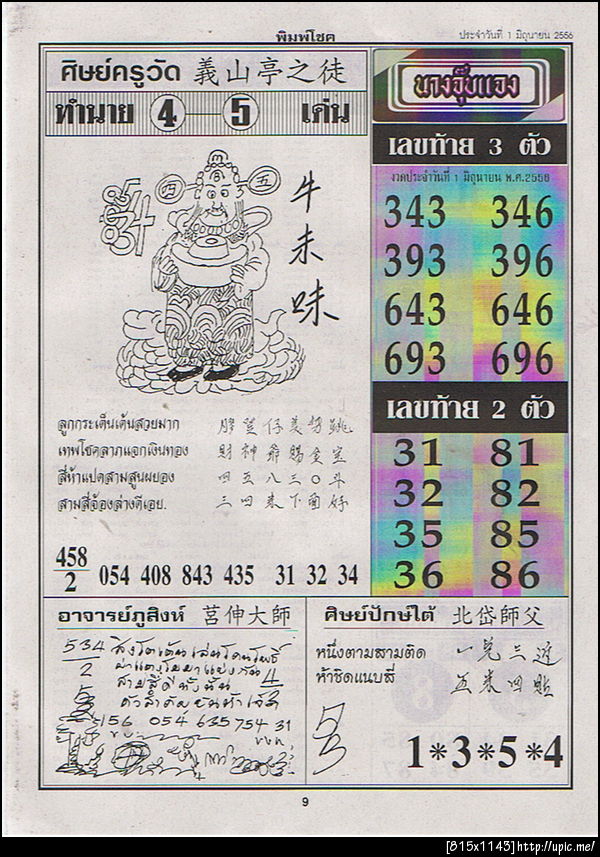 พิมพ์โชค
ประจำวันที่ 1 มิถุนายน 2556
ศิษย์ครูวัด 義山亭之徒
ทำนาย 4-5 เด่น
四 五
牛
未
味
ลูกกระเต็นเต้นสวยมาก
เทพโชคลาภแจกเงินทอง 財神爺賜金宝
สี่ห้าแปดสามสูนผยอง 四五八三〇斗
สามสี่จ้องล่างดีเอย. 三四来下面好
458
2
054 408 843 435 31 32 34
นางจุ๊บแจง
เลขท้าย 3 ตัว
งวดประจำวันที่ 1 มิถุนายน พ.ศ.2556
343 346
393 396
643 646
693 696
เลขท้าย 2 ตัว
31 81
32 82
35 85
36 86
อาจารย์ภูสิงห์ 莒伸大師
534
2
156 054 635 754 31
ศิษย์ปักษ์ใต้ 北岱師父
หนึ่งตามสามติด
ห้าชิดแนบสี่ 五来四贴
1*3*5*4
9
[815x1143]http://upic.me/